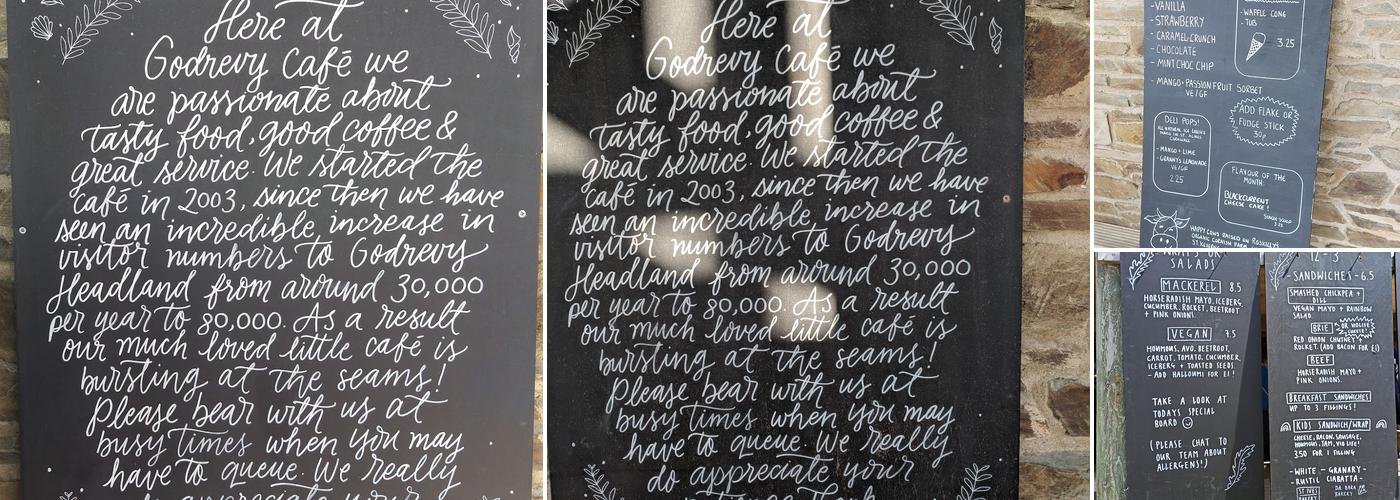 Here at
Godrevy Café we
are passionate about
tasty food, good coffee &
great service. We started the
café in 2003, since then we have
seen an incredible, increase in
visitor numbers to Godrevy
Headland from around 30,000
per year to 80,000. As a result
our much loved little café is
bursting at the seams!
Please bear with us at
busy times when you may
have to queue. We really
do appreciate your
Here at
Godrevy Café we
are passionate about
tasty food, good coffee &
great service. We started the
café in 2003, since then we have
seen an incredible, increase in
visitor numbers to Godrevy
Headland from around 30,000
per year to 80,000. As a result
our much loved little café is
bursting at the seams!
Please bear with us at
busy times when you may
have to queue. We really
do appreciate your
- VANILLA
- STRAWBERRY
- CARAMEL CRUNCH
- CHOCOLATE
- MINT CHOC CHIP
- MANGO + PASSION FRUIT SORBET
VE/GF
- WAFFLE CONE
- TUB
3.25
ADD FLAKE OR
FUDGE STICK
30p
DELI POPS!
ALL NATURAL ICE LOLLIES
MADE IN ST. AGNES
CORNWALL
- MANGO + LIME
- GRANNY'S LEMONADE
VE/GF
2.25
FLAVOUR OF THE
MONTH:
BLACKCURRENT
CHEESE CAKE!
SINGLE SCOOP
3.25
HAPPY COWS RAISED ON ROSKILLY'S
ORGANIC CORNISH FARM
WHAT'S ON
SALADS
MACKEREL 8.5
HORSERADISH MAYO, ICEBERG,
CUCUMBER, ROCKET, BEETROOT
+ PINK ONIONS.
VEGAN 7.5
HOUMMOUS, AVO, BEETROOT,
CARROT, TOMATO, CUCUMBER,
ICEBERG + TOASTED SEEDS.
- ADD HALLOUMI FOR £1!
TAKE A LOOK AT
TODAYS SPECIAL
BOARD
(PLEASE CHAT TO
OUR TEAM ABOUT
ALLERGENS!)
12 - 3
- SANDWICHES - 6.5
SMASHED CHICKPEA +
DILL
VEGAN MAYO + RAINBOW
SALAD
BRIE OR VIOLIFE
CHEESE!
RED ONION CHUTNEY +
ROCKET (ADD BACON FOR £1)
BEEF
HORSERADISH MAYO +
PINK ONIONS.
BREAKFAST SANDWICHES
UP TO 3 FILLINGS!
KIDS SANDWICH/WRAP
CHEESE, BACON, SAUSAGE,
HOUMMOUS, JAM, VIO LIFE!
3.50 FOR 1 FILLING
- WHITE - GRANARY -
- RUSTIC CIABATTA -
ST IVES
BAKERY
DA BARA
BAKERY